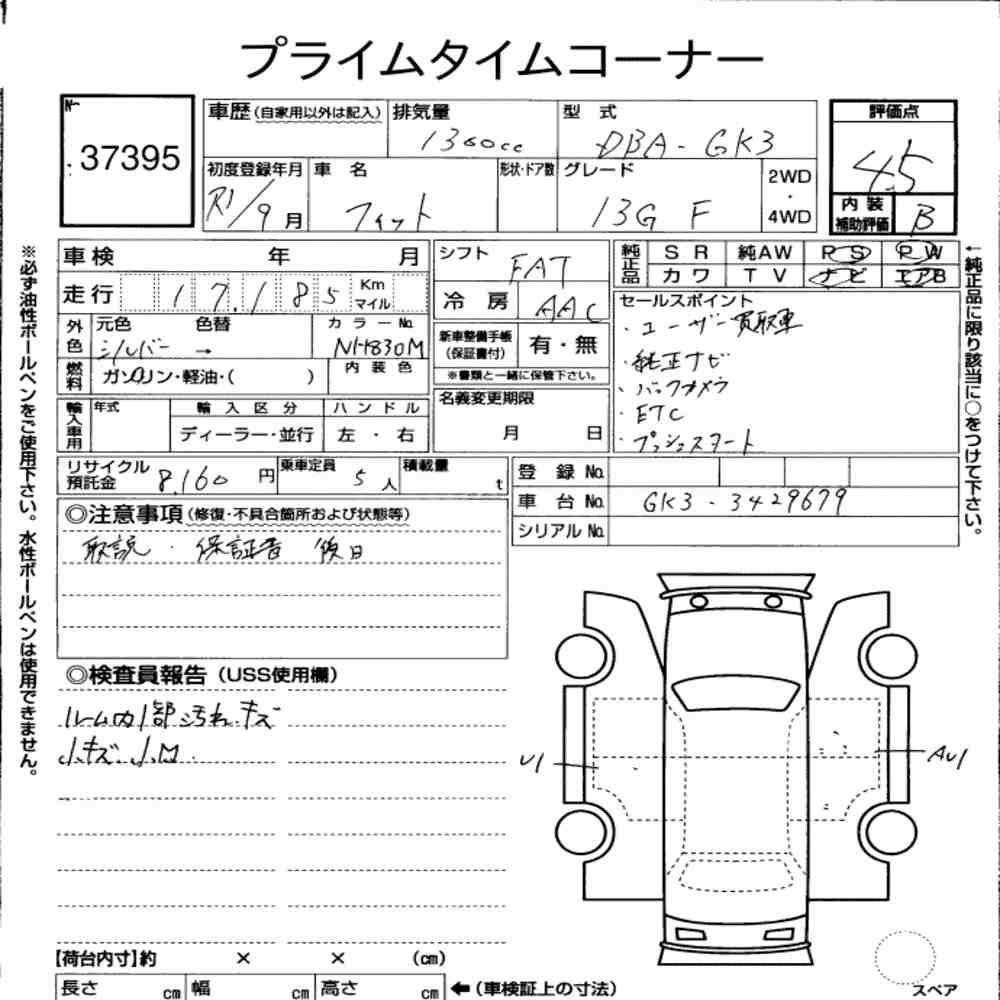 プライムタイムコーナー
No.
37395
車歴(自家用以外は記入) 排気量 型 式 評価点
1300cc DBA-GK3 4.5
初度登録年月 車 名 形状・ドア数 グレード 2WD・4WD
R1/9月 フィット 13G F
内装補助評価 B
車検 年 月 シフト FAT
走行 17,185 Km マイル
冷 房 AAC
純正品 SR 純AW PS PW
カワ TV ナビ エアB
外色 元色 色替 カラーNo.
シルバー → NH830M
燃料 ガソリン・軽油・( ) 内装色
新車整備手帳(保証書付) 有・無
※書類と一緒に保管下さい。
セールスポイント
・ユーザー買取車
・純正ナビ
・バックカメラ
・ETC
・プッシュスタート
輸入車用 年式 輸入区分 ハンドル
ディーラー・並行 左・右
名義変更期限
月 日
リサイクル預託金 8,160円 乗車定員 5人 積載量 t
登 録 No.
車 台 No. GK3-3429679
シリアル No.
◎注意事項(修復・不具合箇所および状態等)
取説・保証書 後日
◎検査員報告(USS使用欄)
ルーム内1部汚れ、キズ
小キズ、小凹.
U1
AU1
【荷台内寸】約 × × (cm)
長さ cm 幅 cm 高さ cm ←(車検証上の寸法)
スペア
※必ず油性ボールペンをご使用下さい。水性ボールペンは使用できません。
←純正品に限り該当に○をつけて下さい。